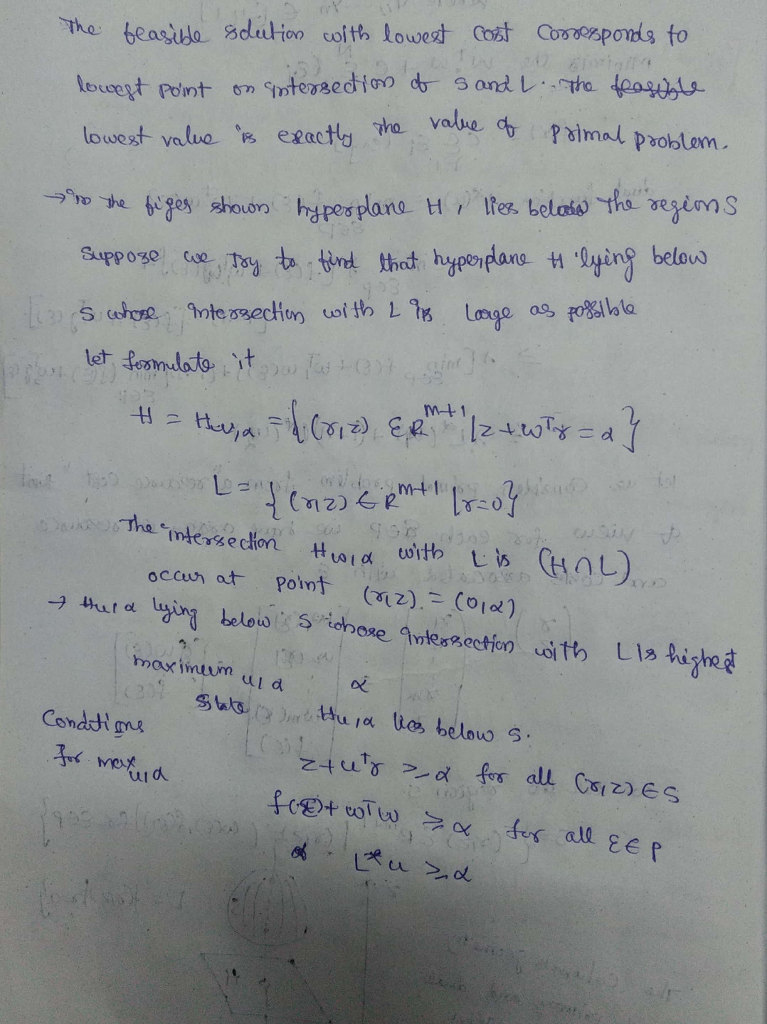 The feasible solution with lowest cost corresponds to
lowest point on intersection of S and L. The feasible
lowest value is exactly the value of primal problem.
→ In the figer shown hyperplane H, lies below the region S
Suppose we try to find that hyperplane H lying below
S whose intersection with L is large as possible
let formulate it
H = H_{u,α} = { (r,z) ∈ R^{m+1} | z + w^T r = α }
L = { (r,z) ∈ R^{m+1} | r=0 }
The intersection H_{u,α} with L is (H ∩ L)
occur at point (r,z) = (0,α)
→ H_{u,α} lying below S whose intersection with L is highest
maximum u,α α
State H_{u,α} lies below S.
Conditions
for max_{u,α} z + u^T r ≥ α for all (r,z) ∈ S
f(ε) + w^T w ≥ α for all ε ∈ P
L* u ≥ α